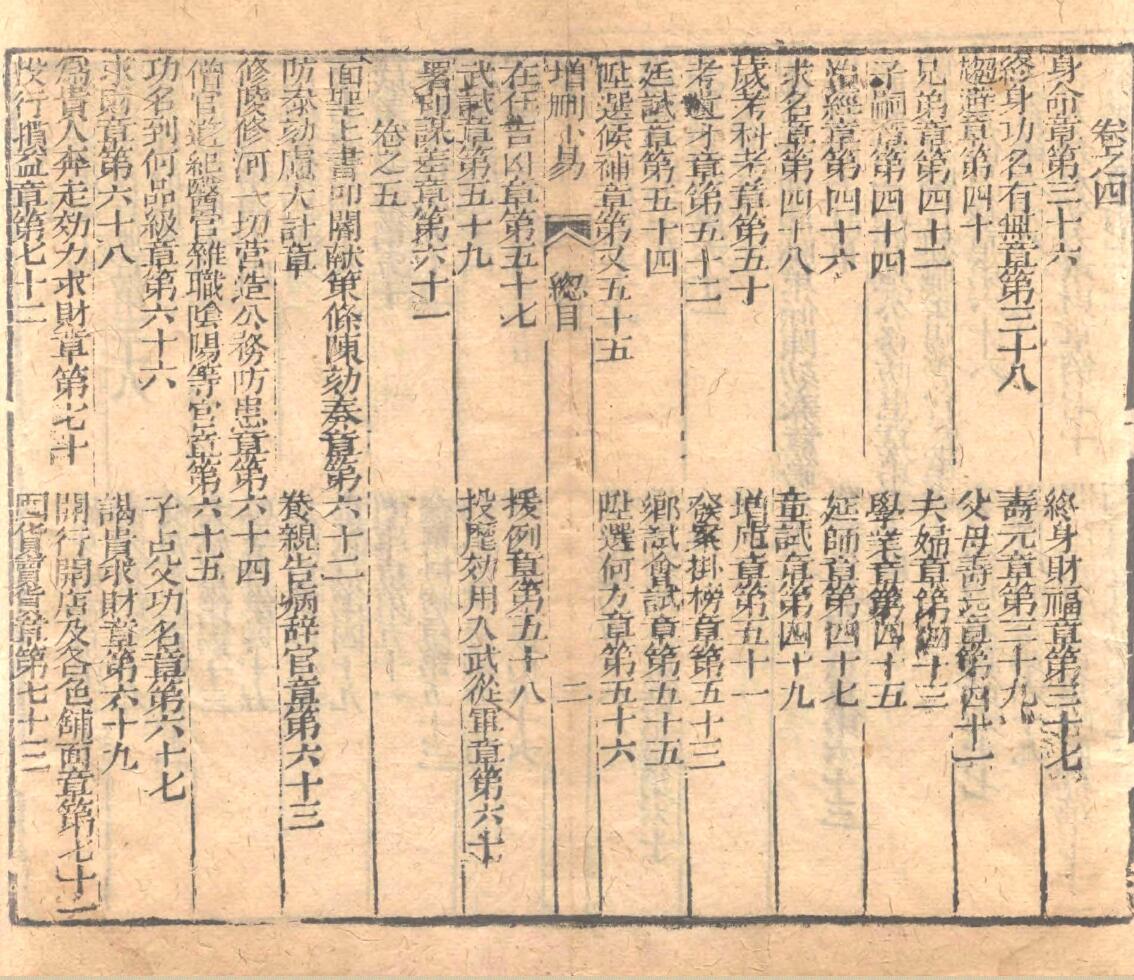 卷之四
身命章第三十六 終身財福章第三十七
終身功名有無章第三十八 壽元章第三十九
趨避章第四十 父母壽元章第四十一
兄弟章第四十二 夫婦章第四十三
子嗣章第四十四 學業章第四十五
治經章第四十六 延師章第四十七
求名章第四十八 童試章第四十九
歲考科考章第五十 增廩章第五十一
考遺才章第五十二 發案掛榜章第五十三
廷試章第五十四 鄉試會試章第五十五
陞選候補章第又五十五 陞選何方章第五十六
增刪卜易 總目 二
在任吉凶章第五十七 援例章第五十八
武試章第五十九 投麾効用入武從軍章第六十
署印謀差章第六十一
卷之五
面聖上書叩閽献策條陳劾奏章第六十二
防泰劾慮大計章 養親告病辞官章第六十三
修陵修河一切营造公務防患章第六十四
僧官道紀醫官雜職陰陽等官章第六十五
功名到何品級章第六十六 子占父功名章第六十七
求財章第六十八 謁貴求財章第六十九
爲貴人奔走効力求財章第七十 開行開店及各色鋪面章第七十一
投行損益章第七十二 囤貨賣貨章第七十三